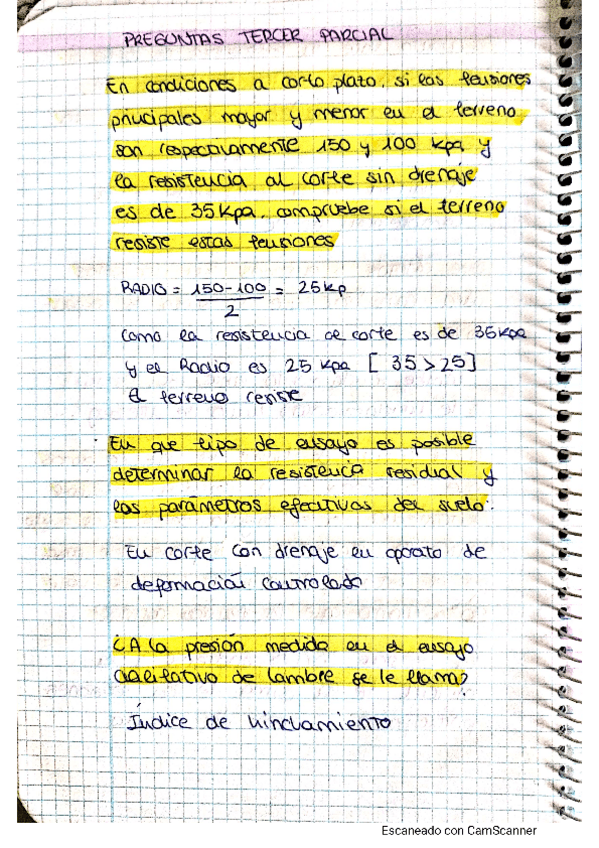 PREGUNTAS TERCER PARCIAL
En condiciones a corto plazo, si las tensiones
principales mayor y menor en el terreno
son respectivamente 150 y 100 kpa y
la resistencia al corte sin drenaje
es de 35 kpa. compruebe si el terreno
resiste estas tensiones
RADIO = 150-100 = 25kp
2
Como la resistencia al corte es de 35 kpa
y el Radio es 25 kpa [ 35 > 25]
El terreno resiste
En que tipo de ensayo es posible
determinar la resistencia residual y
los parámetros efectivos del suelo.
En corte con drenaje en aparato de
deformación controlada
¿A la presión medida en el ensayo
cualitativo de Lambre se le llama?
Índice de hinchamiento
Escaneado con CamScanner